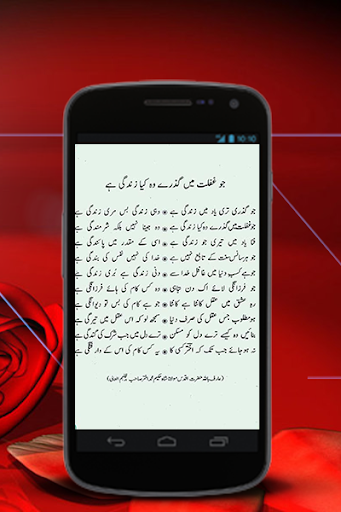 10:10
جو غفلت میں گذرے وہ کیا زندگی ہے
جو گذری تری یاد میں زندگی ہے وہی زندگی بس مری زندگی ہے
جو غفلت میں گذرے وہ کیا زندگی ہے وہ جینا نہیں بلکہ شرمندگی ہے
فنا یاد میں تیری جو زندگی ہے اسی کے مقدر میں پائندگی ہے
جو ہر سانس سنت کے تابع نہیں ہے خدا کی نہیں نفس کی بندگی ہے
جو ہے کسب دنیا میں غافل خدا سے دنی زندگی ہے بُری زندگی ہے
جو فرزانگی لائے اک دن تباہی وہ کس کام کی ہائے فرزانگی ہے
رہ عشق میں عقل کانٹا ہے کانٹا جو ہے کام کی بس تو دیوانگی ہے
ہو مطلوب جس عقل کی صرف دنیا سمجھ لو کہ اس عقل میں تیرگی ہے
بنائیں وہ کیسے ترے دل کو مسکن ترے دل میں جب شرک کی گندگی ہے
نہ ہو جائے جب تک کہ اختر کسی کا یہ کس کام کی اس کے وارفتگی ہے
(عارف باللہ حضرت اقدس مولانا شاہ حکیم محمد اختر صاحب